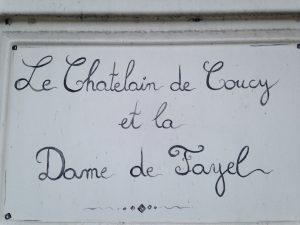 Le Chatelain de Coucy
et la
Dame de Fayel